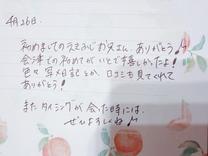 4月26日.
初めましてのえろふじお父さん、ありがとう♪
会津での初めてがいとで嬉しかったよ!
色々写メ日記とか、口コミも見てくれて
ありがとう!
またタイミングが会った時には、
ぜひよろしくね♪